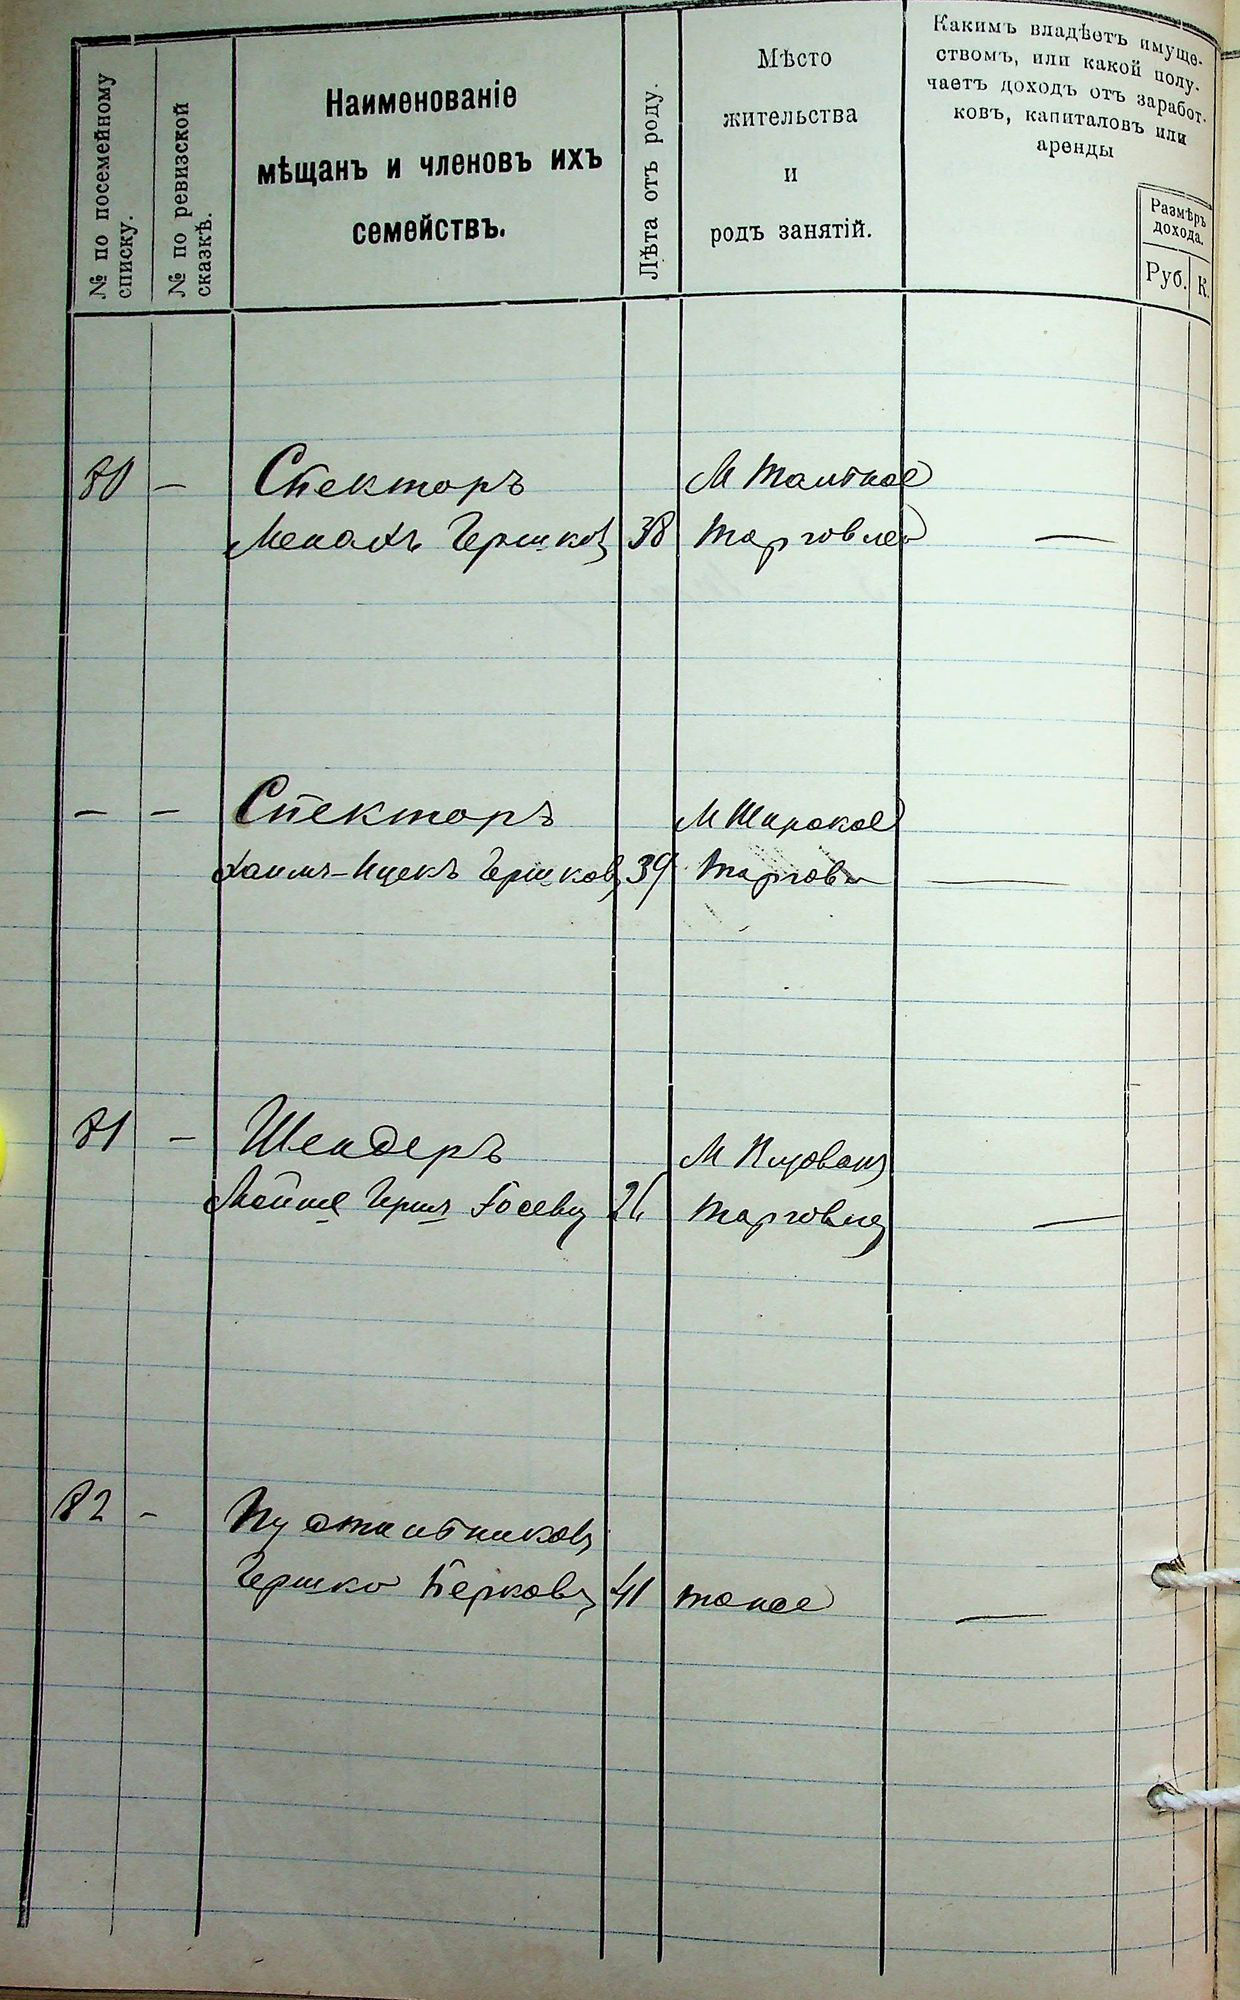 № по посемейному
списку.
№ по ревизской
сказкѣ.
Наименованіе
мѣщанъ и членовъ ихъ
семействъ.
Лѣта отъ роду.
Мѣсто
жительства
и
родъ занятій.
Какимъ владѣетъ имуще-
ствомъ, или какой полу-
чаетъ доходъ отъ заработ-
ковъ, капиталовъ или
аренды
Размѣръ
дохода.
Руб. К.
80 — Спекторъ М
Гершков 38 Торговлей —
— — Спекторъ М Широкое
Хаимъ-Ицекъ Гершков 39 Торговля —
81 — Шендеръ М
Мойше Герш 26 Торговля —
82 -
Гершко Берков 41 тоже —